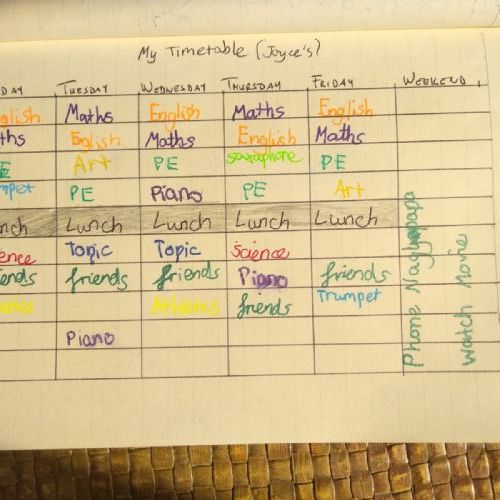 My Timetable (Joyce's)
DAY TUESDAY WEDNESDAY THURSDAY FRIDAY WEEKEND
glish Maths English Maths English
ths English Maths English Maths
E Art PE saxaphone PE
mpet PE Piano PE Art
nch Lunch Lunch Lunch Lunch
ence Topic Topic Science
ends friends friends Piano friends
Athletics friends Trumpet
Piano
Phone
Watch Movie